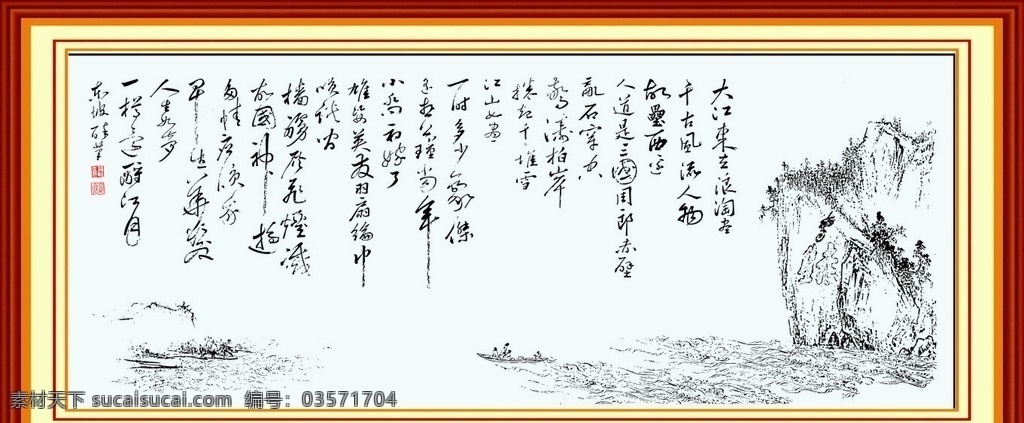 大江東去浪淘盡
千古風流人物
故壘西邊
人道是三國周郎赤壁
亂石穿空
驚濤拍岸
捲起千堆雪
江山如畫
一時多少豪傑
遙想公瑾當年
小喬初嫁了
雄姿英發羽扇綸巾
笑談間
檣艣灰飛煙滅
故國神遊
多情應笑我
早生華髮
人生如夢
一樽還酹江月
東坡醉筆
素材天下 sucaisucai.com 编号：03571704